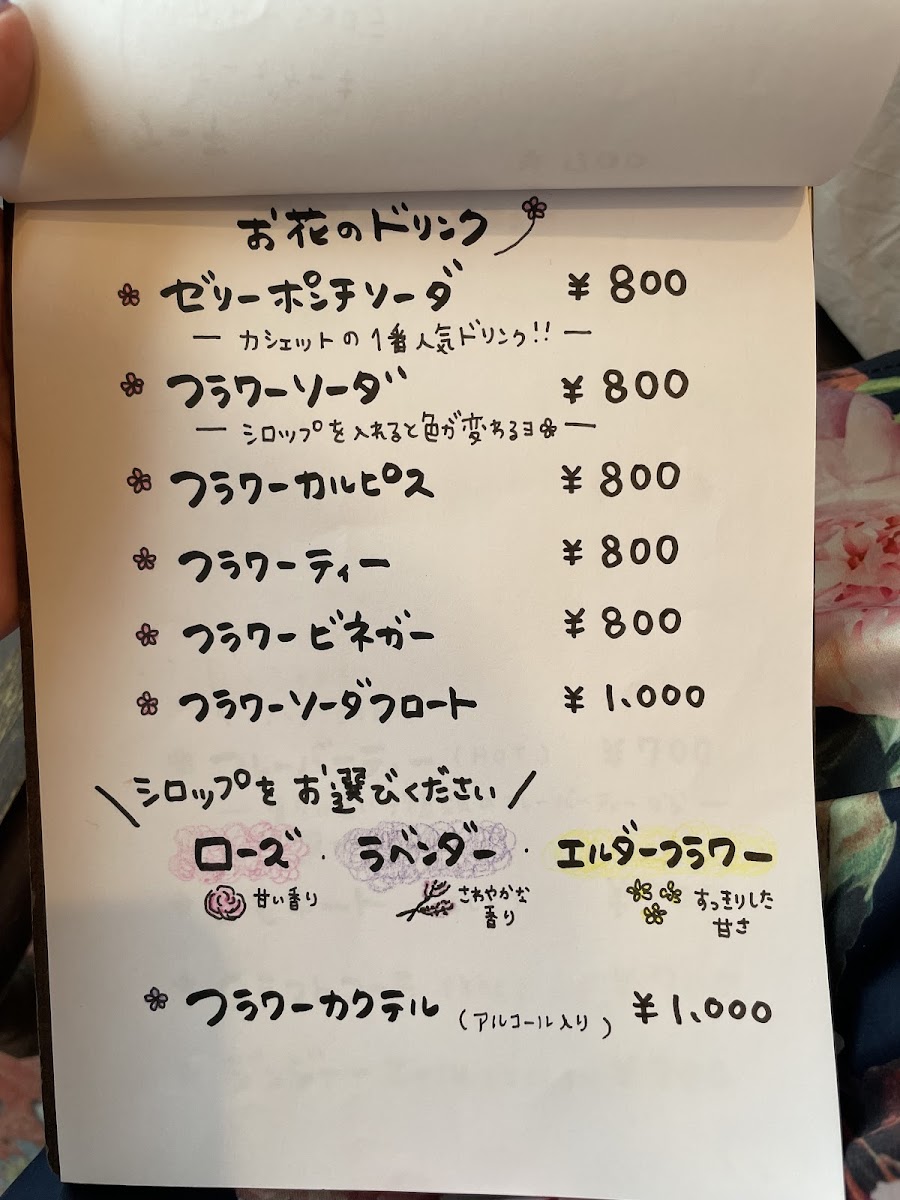 お花のドリンク
ゼリーポンチソーダ ¥800
ー カシェットの1番人気ドリンク!! ー
フラワーソーダ ¥800
ー シロップを入れると色が変わるヨ ー
フラワーカルピス ¥800
フラワーティー ¥800
フラワービネガー ¥800
フラワーソーダフロート ¥1.000
\シロップをお選びください/
ローズ・ラベンダー・エルダーフラワー
甘い香り さわやかな香り すっきりした甘さ
フラワーカクテル (アルコール入り) ¥1.000